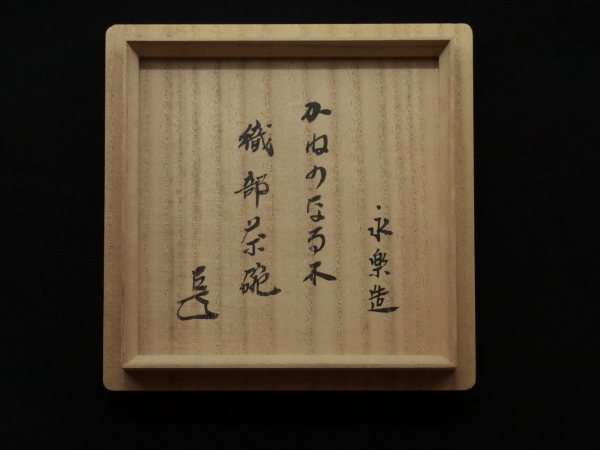 永楽造
かねのなる木
織部茶碗